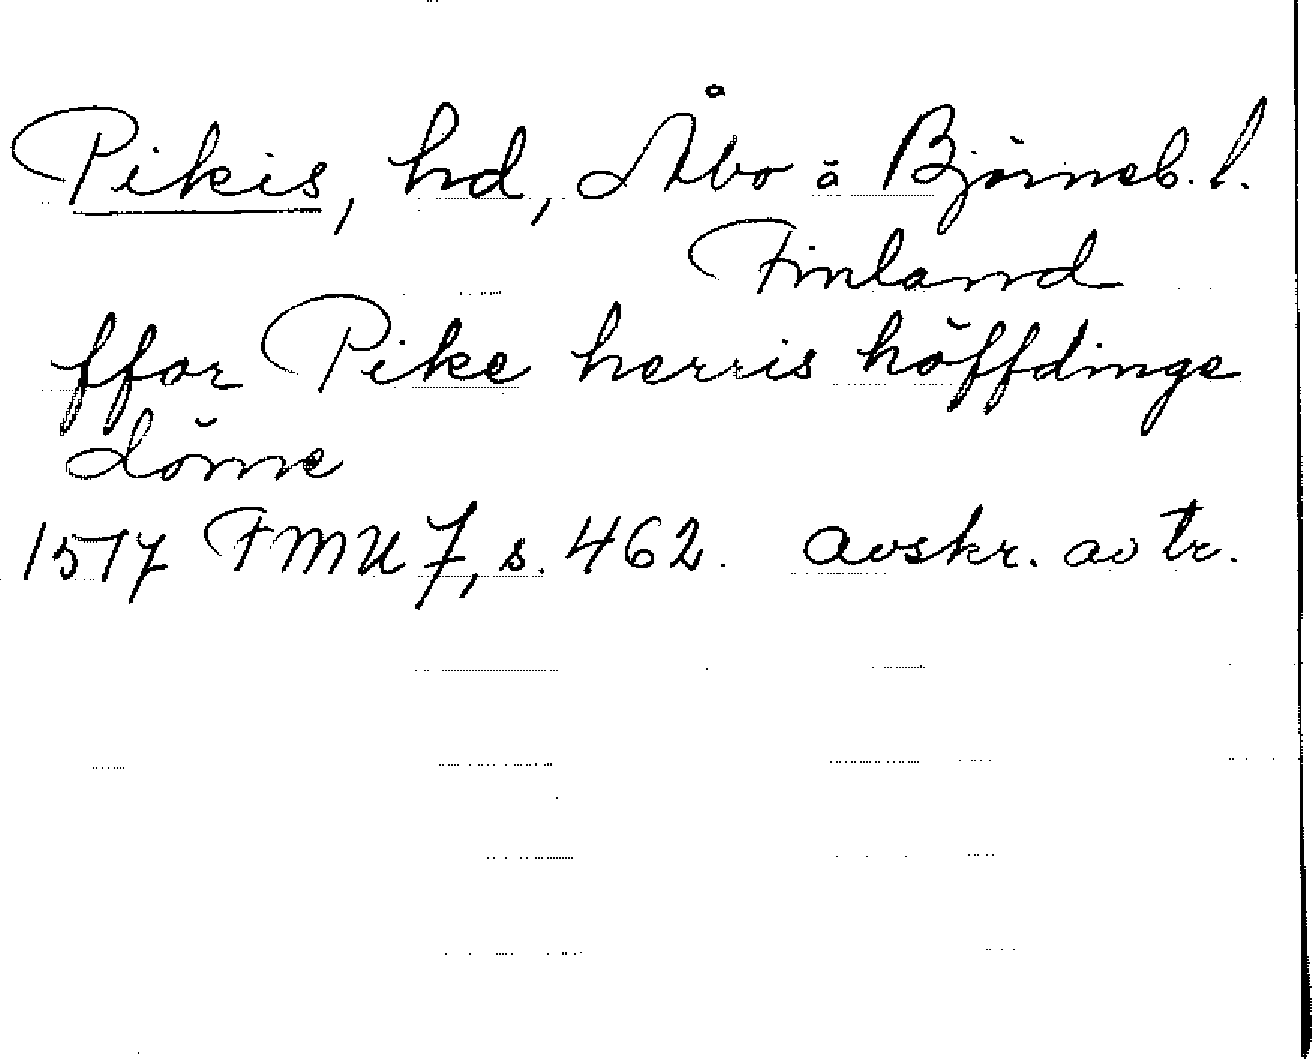 Pikis, hd, Åbo o Björneb. l.
Finland
ffor Pike herris höffdinge
döme
1517 FMU 7, s. 462. avskr. av tr.